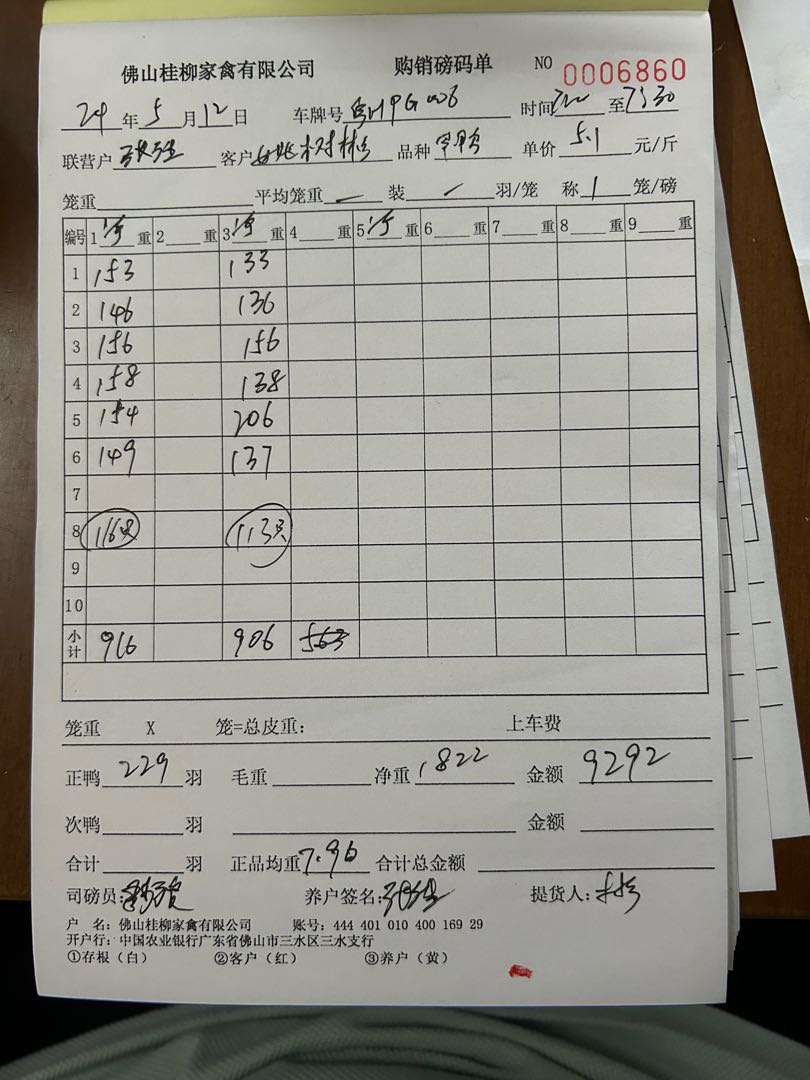 佛山桂柳家禽有限公司 购销磅码单 NO 0006860
24年5月12日 车牌号 时间 至7:30
联营户 客户 品种 单价5.1元/斤
笼重 平均笼重 装 羽/笼 称1笼/磅
编号 1 重 2 重 3 重 4 重 5 重 6 重 7 重 8 重 9 重
1 153 133
2 146 136
3 156 156
4 158 138
5 154 206
6 149 137
7
8 116只 113只
9
10
小计 916 906 563
笼重 X 笼=总皮重: 上车费
正鸭229羽 毛重 净重1822 金额9292
次鸭 羽 金额
合计 羽 正品均重7.96 合计总金额
司磅员: 养户签名: 提货人:
户 名: 佛山桂柳家禽有限公司 账号: 444 401 010 400 169 29
开户行: 中国农业银行广东省佛山市三水区三水支行
①存根(白) ②客户(红) ③养户(黄)